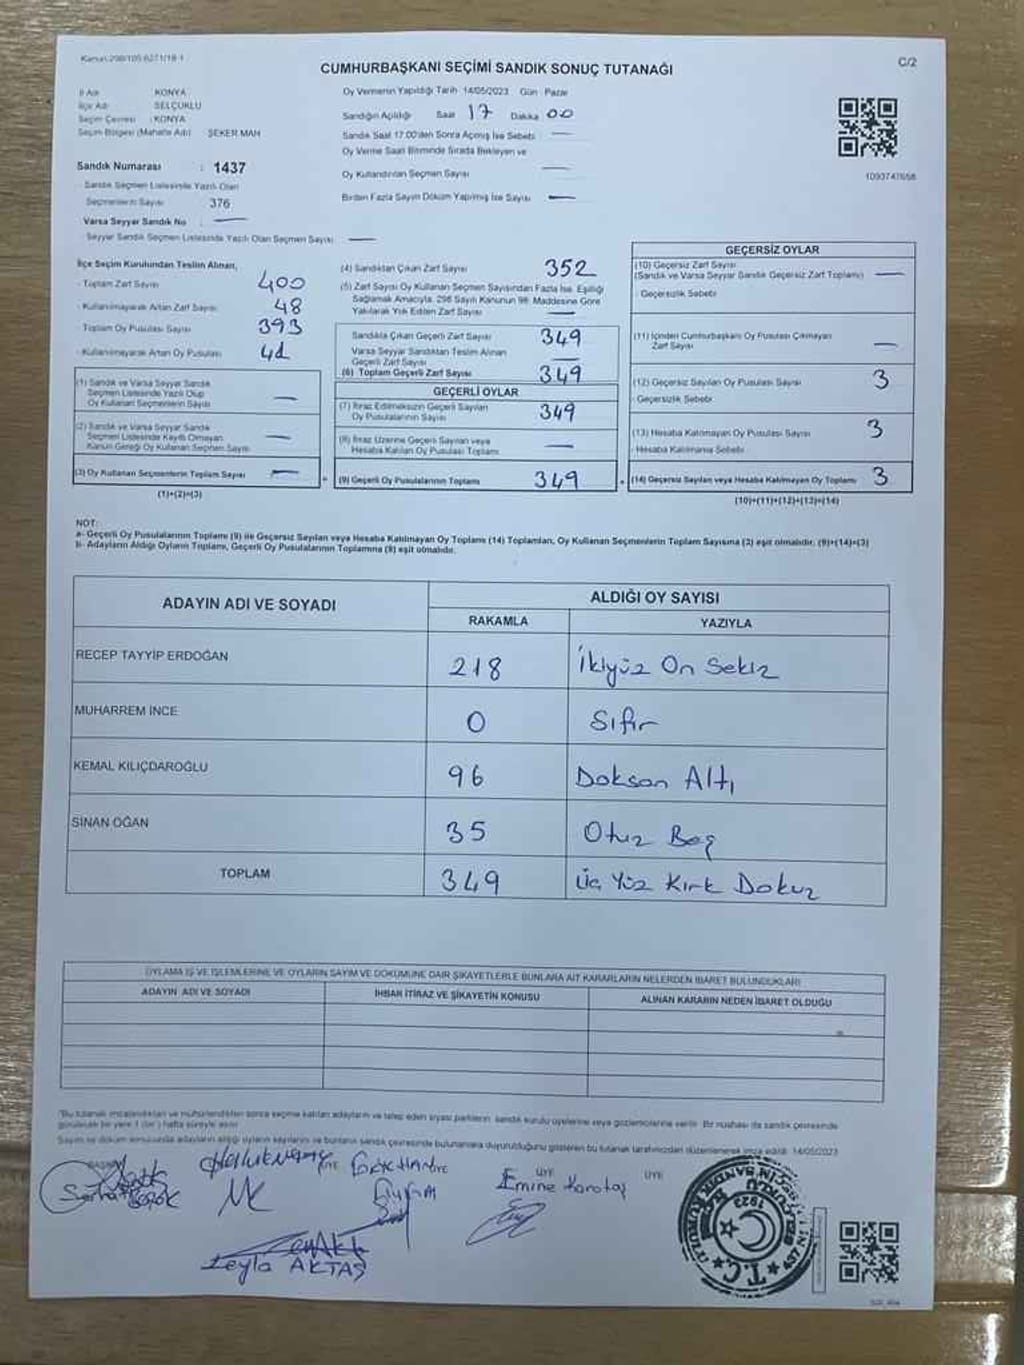 Kanun:298/105 6271/18-1
C/2
CUMHURBAŞKANI SEÇİMİ SANDIK SONUÇ TUTANAĞI
İl Adı KONYA
İlçe Adı SELÇUKLU
Seçim Çevresi : KONYA
Seçim Bölgesi (Mahalle Adı) ŞEKER MAH
Sandık Numarası : 1437
Sandık Seçmen Listesinde Yazılı Olan
Seçmenlerin Sayısı 376
Varsa Seyyar Sandık No : —
Seyyar Sandık Seçmen Listesinde Yazılı Olan Seçmen Sayısı —
Oy Vermenin Yapıldığı Tarih 14/05/2023 Gün Pazar
Sandığın Açıldığı Saat 17 Dakika 00
Sandık Saat 17.00'den Sonra Açılmış İse Sebebi —
Oy Verme Saati Bitiminde Sırada Bekleyen ve
Oy Kullandırılan Seçmen Sayısı —
Birden Fazla Sayım Döküm Yapılmış İse Sayısı —
1093747658
İlçe Seçim Kurulundan Teslim Alınan,
- Toplam Zarf Sayısı 400
- Kullanılmayarak Artan Zarf Sayısı 48
- Toplam Oy Pusulası Sayısı 393
- Kullanılmayarak Artan Oy Pusulası
(1) Sandık ve Varsa Seyyar Sandık
Seçmen Listesinde Yazılı Olup
Oy Kullanan Seçmenlerin Sayısı —
(2) Sandık ve Varsa Seyyar Sandık
Seçmen Listesinde Kayıtlı Olmayan
Kanun Gereği Oy Kullanan Seçmen Sayısı —
(3) Oy Kullanan Seçmenlerin Toplam Sayısı —
(1)+(2)=(3)
(4) Sandıktan Çıkan Zarf Sayısı 352
(5) Zarf Sayısı Oy Kullanan Seçmen Sayısından Fazla İse, Eşitliği
Sağlamak Amacıyla, 298 Sayılı Kanunun 98. Maddesine Göre
Yakılarak Yok Edilen Zarf Sayısı —
Sandıkta Çıkan Geçerli Zarf Sayısı 349
Varsa Seyyar Sandıktan Teslim Alınan
Geçerli Zarf Sayısı —
(6) Toplam Geçerli Zarf Sayısı 349
GEÇERLİ OYLAR
(7) İtiraz Edilmeksizin Geçerli Sayılan
Oy Pusulalarının Sayısı 349
(8) İtiraz Üzerine Geçerli Sayılan veya
Hesaba Katılan Oy Pusulası Toplamı —
(9) Geçerli Oy Pusulalarının Toplamı 349
GEÇERSİZ OYLAR
(10) Geçersiz Zarf Sayısı
(Sandık ve Varsa Seyyar Sandık Geçersiz Zarf Toplamı) —
- Geçersizlik Sebebi
(11) İçinden Cumhurbaşkanı Oy Pusulası Çıkmayan
Zarf Sayısı —
(12) Geçersiz Sayılan Oy Pusulası Sayısı 3
- Geçersizlik Sebebi:
(13) Hesaba Katılmayan Oy Pusulası Sayısı 3
- Hesaba Katılmama Sebebi
(14) Geçersiz Sayılan veya Hesaba Katılmayan Oy Toplamı 3
(10)+(11)+(12)+(13)=(14)
NOT:
a- Geçerli Oy Pusulalarının Toplamı (9) ile Geçersiz Sayılan veya Hesaba Katılmayan Oy Toplamı (14) Toplamları, Oy Kullanan Seçmenlerin Toplam Sayısına (3) eşit olmalıdır. (9)+(14)=(3)
b- Adayların Aldığı Oyların Toplamı, Geçerli Oy Pusulalarının Toplamına (9) eşit olmalıdır.
ADAYIN ADI VE SOYADI
ALDIĞI OY SAYISI
RAKAMLA YAZIYLA
RECEP TAYYİP ERDOĞAN 218 İkiyüz On Sekiz
MUHARREM İNCE 0 Sıfır
KEMAL KILIÇDAROĞLU 96 Doksan Altı
SİNAN OĞAN 35 Otuz Beş
TOPLAM 349 Üç Yüz Kırk Dokuz
OYLAMA İŞ VE İŞLEMLERİNE VE OYLARIN SAYIM VE DÖKÜMÜNE DAİR ŞİKAYETLERLE BUNLARA AİT KARARLARIN NELERDEN İBARET BULUNDUKLARI
ADAYIN ADI VE SOYADI İHBAR İTİRAZ VE ŞİKAYETİN KONUSU ALINAN KARARIN NEDEN İBARET OLDUĞU
Bu tutanak imzalandıktan ve mühürlendikten sonra seçime katılan adayların ve talep eden siyasi partilerin sandık kurulu üyelerine veya gözlemcilerine verilir. Bir nüshası da sandık çevresinde
Sayım ve döküm sonucunda adayların aldığı oyların sayılarını ve bunların sandık çevresinde bulunanlara duyurulduğunu gösteren bu tutanak tarafımızdan düzenlenerek imza edildi. 14/05/2023
BAŞKAN ÜYE ÜYE ÜYE ÜYE
Emine Karataş
Leyla AKTAŞ
T.C.
1923